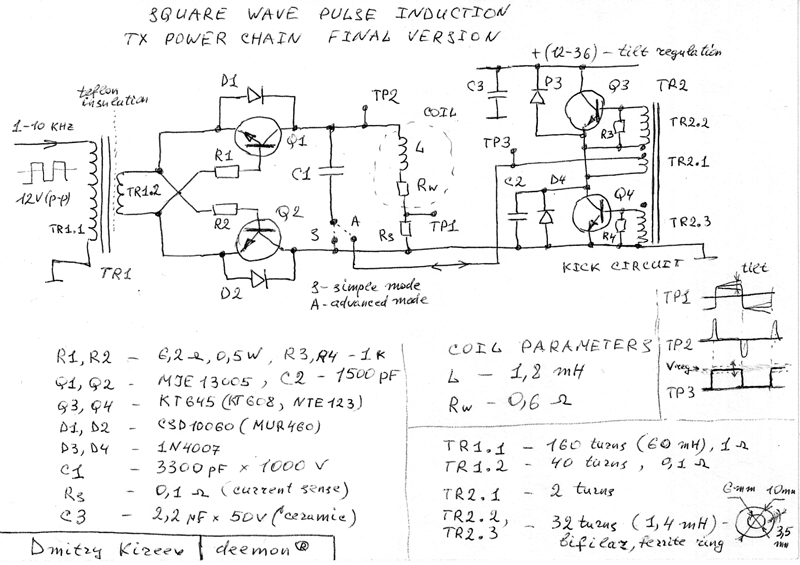 SQUARE WAVE PULSE INDUCTION
TX POWER CHAIN FINAL VERSION
+(12-36) - tilt regulation
teflon
insulation
1-10 KHZ
12V(p-p)
TR1.1
TR1.2
TR1
D1
Q1
R1
R2
Q2
D2
TP2
COIL
C1
L
Rw
TP1
Rs
S
A
S - simple mode
A - advanced mode
C3
P3
Q3
TR2
R3
TR2.2
TP3
TR2.1
C2
D4
Q4
R4
TR2.3
KICK CIRCUIT
tilt
TP1
TP2
Vreg
TP3
R1, R2 - 6,2 Ω, 0,5W, R3, R4 - 1K
Q1, Q2 - MJE 13005, C2 - 1500 pF
Q3, Q4 - KT645 (KT608, NTE123)
D1, D2 - CSD10060 (MUR460)
D3, D4 - 1N4007
C1 - 3300 pF × 1000 V
Rs - 0,1 Ω (current sense)
C3 - 2,2 µF × 50V (ceramic)
COIL PARAMETERS
L - 1,2 mH
Rw - 0,6 Ω
TR1.1 - 160 turns (60 mH), 1 Ω
TR1.2 - 40 turns, 0,1 Ω
TR2.1 - 2 turns
TR2.2,
TR2.3 - 32 turns (1,4 mH) -
bifilar, ferrite ring
6mm 10mm
3,5
mm
Dmitry Kireev deemon ®